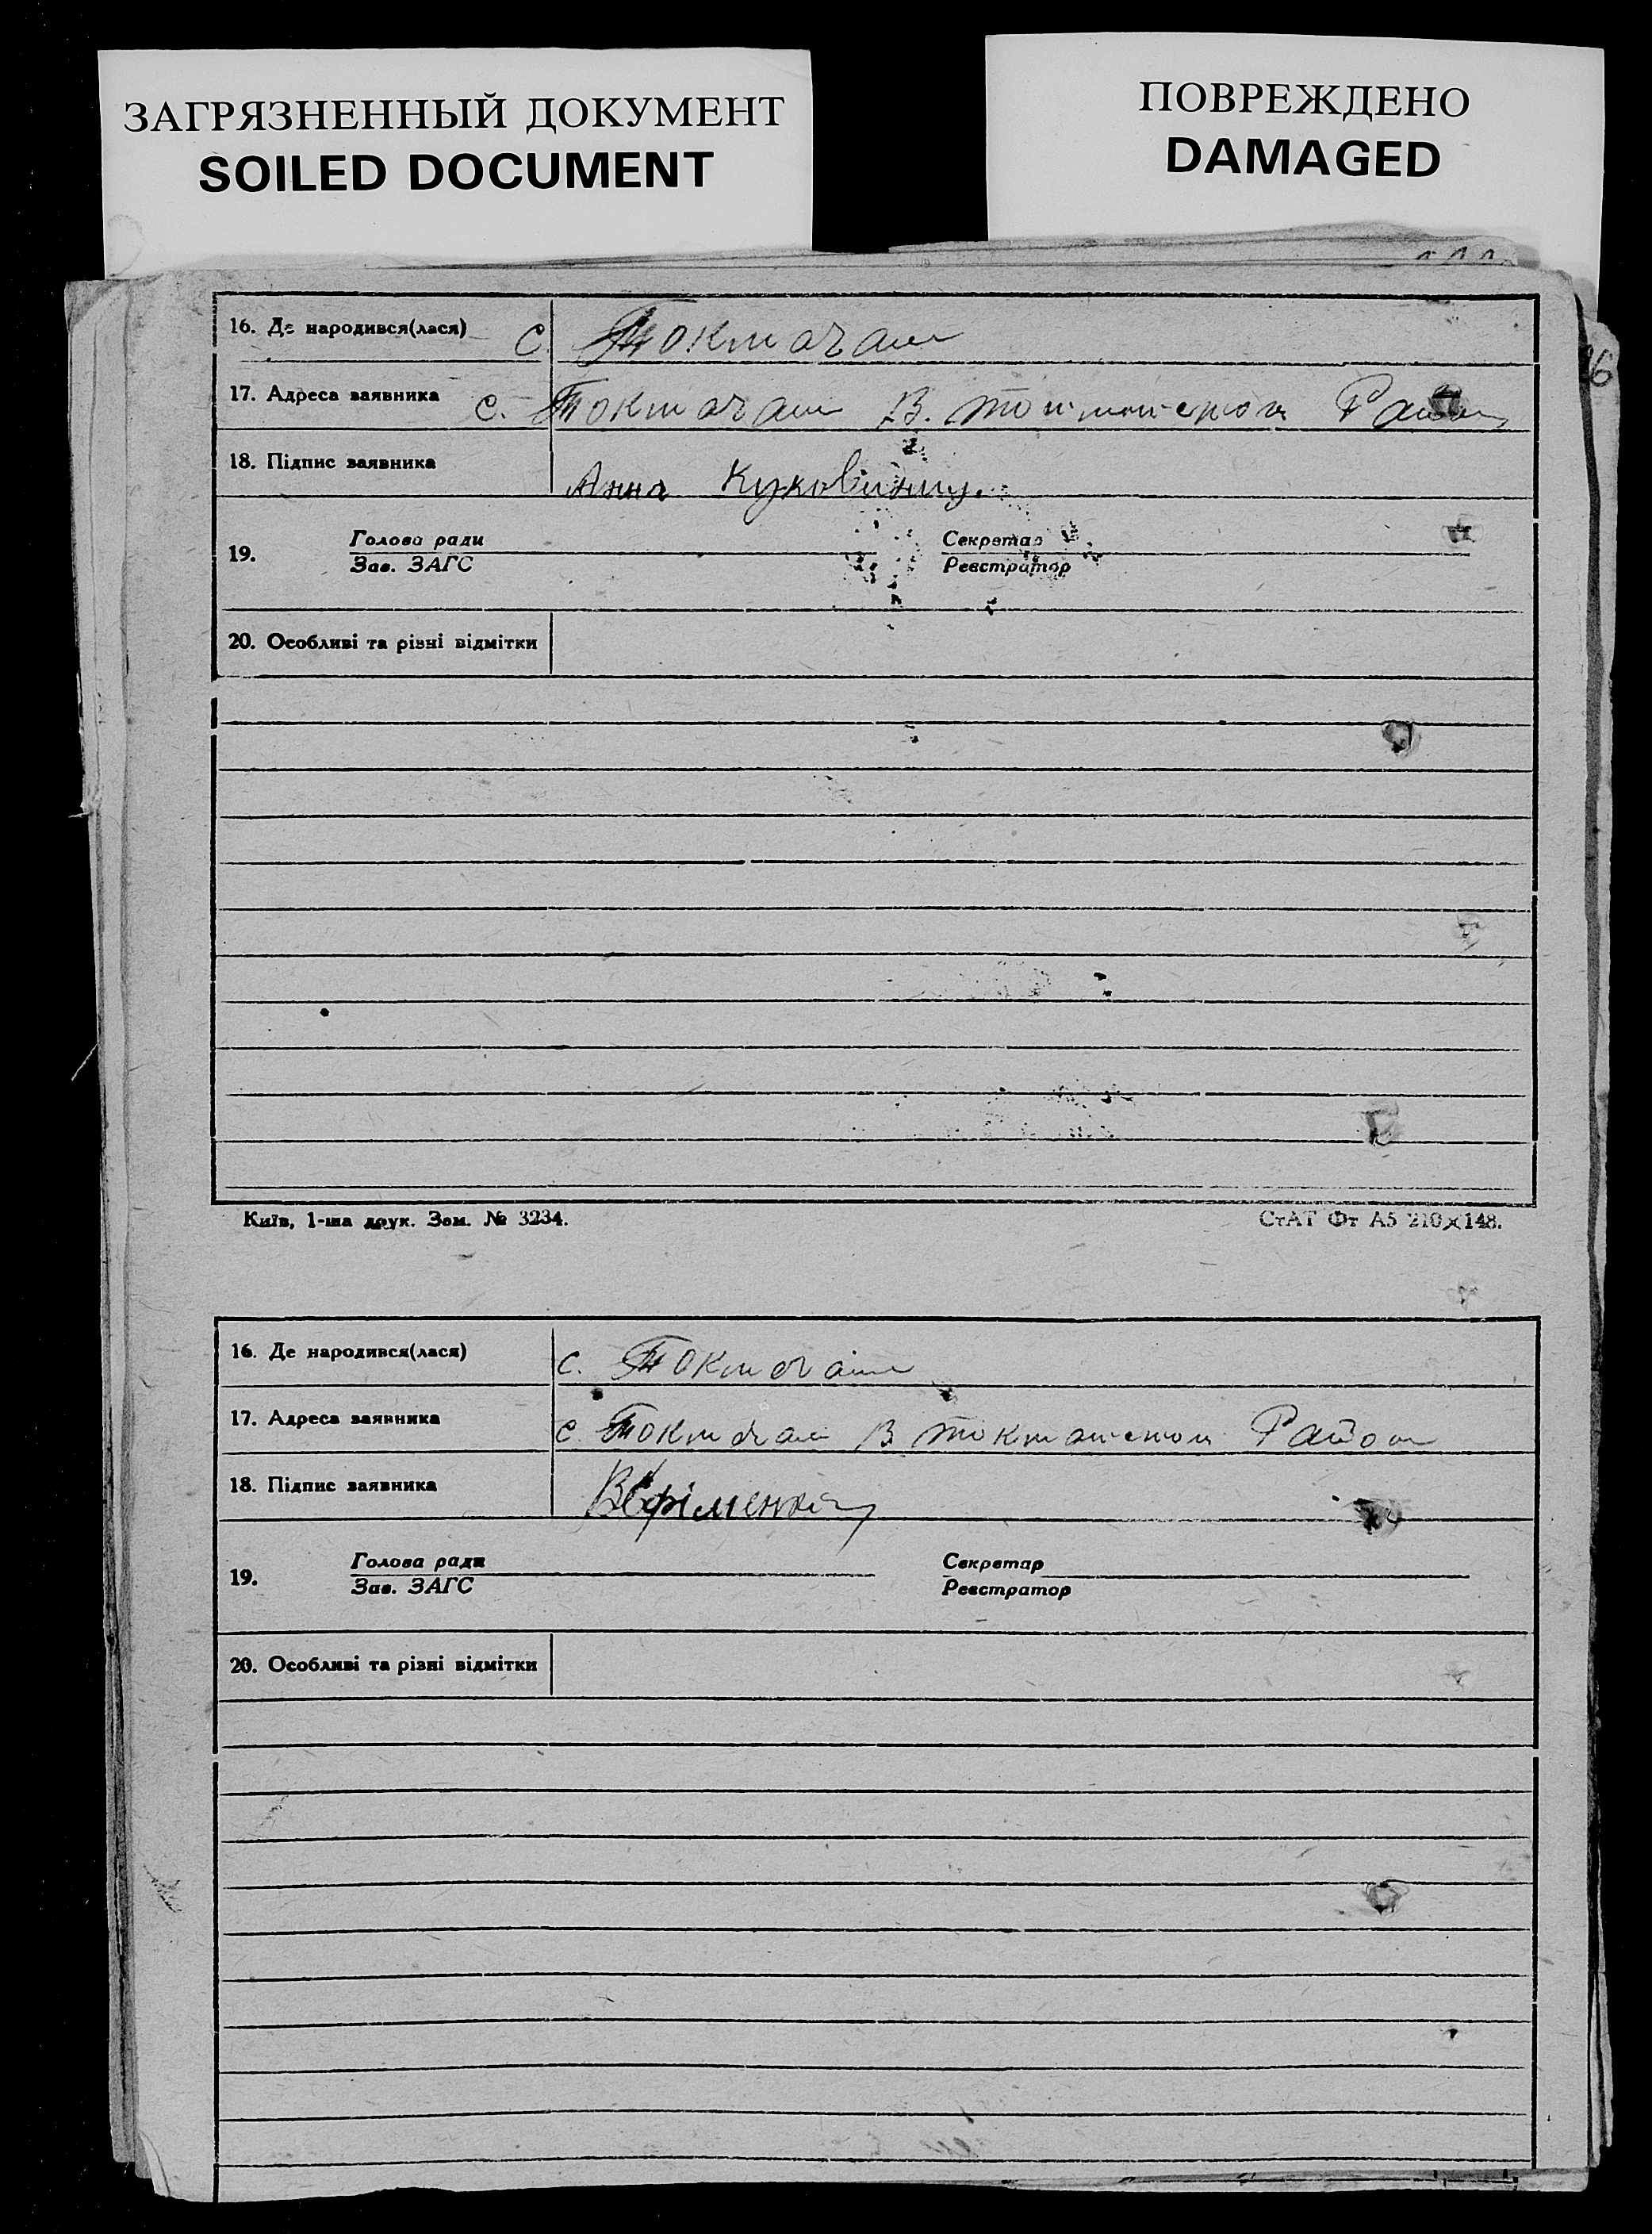 ЗАГРЯЗНЕННЫЙ ДОКУМЕНТ
SOILED DOCUMENT
ПОВРЕЖДЕНО
DAMAGED
16. Де народився(лася) с Токмачаш
17. Адреса заявника с. Токмачаш В. Район
18. Підпис заявника Анна
19. Голова ради Секретар
Зав. ЗАГС Реєстратор
20. Особливі та різні відмітки
Київ, 1-ша друк. Зам. № 3234. СтАТ Фт А5 210×148.
16. Де народився(лася) с. Токмачаш
17. Адреса заявника с Токмачаш В Район
18. Підпис заявника ВЄфіменко
19. Голова ради Секретар
Зав. ЗАГС Реєстратор
20. Особливі та різні відмітки